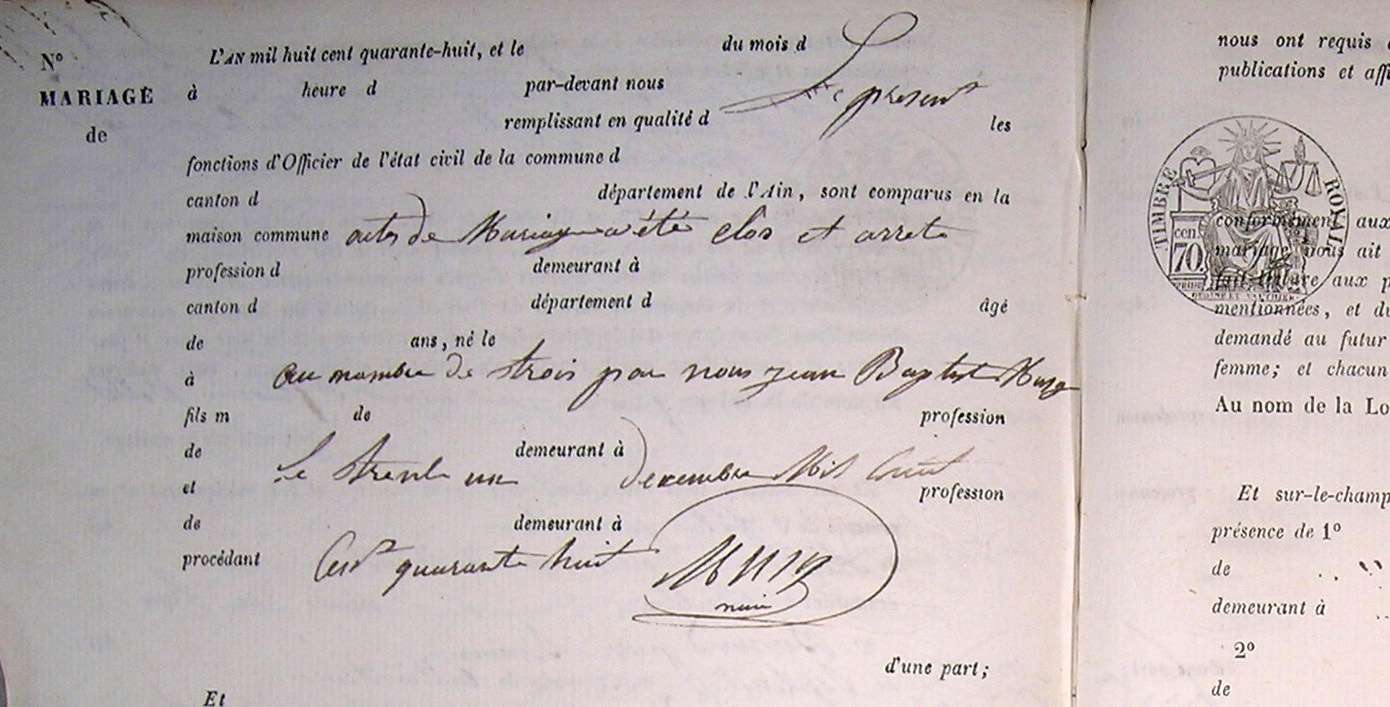 N°
MARIAGE
de
L'AN mil huit cent quarante-huit, et le du mois d
à heure d par-devant nous
Le present
remplissant en qualité d les
fonctions d'Officier de l'état civil de la commune d
canton d département de l'Ain, sont comparus en la
maison commune actes de Mariage a été clos et arrete
profession d demeurant à
canton d département d âgé
de ans, né le
à au nombre de trois par nous jean Baptist
fils m de profession
de demeurant à
le trente un decembre Mil huit
et profession
de demeurant à
procédant Cent quarante huit
d'une part;
Et
nous ont requis
publications et affi
TIMBRE ROYAL
cen. 70.
conformément aux
mariage nous ait
fait lecture aux p
mentionnées, et du
demandé au futur
femme; et chacun
Au nom de la Lo
Et sur-le-champ
présence de 1°
de
demeurant à
2°
de